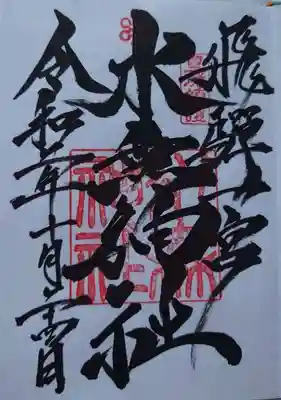 飛騨一宮
水無神社
令和元年十月二十四日